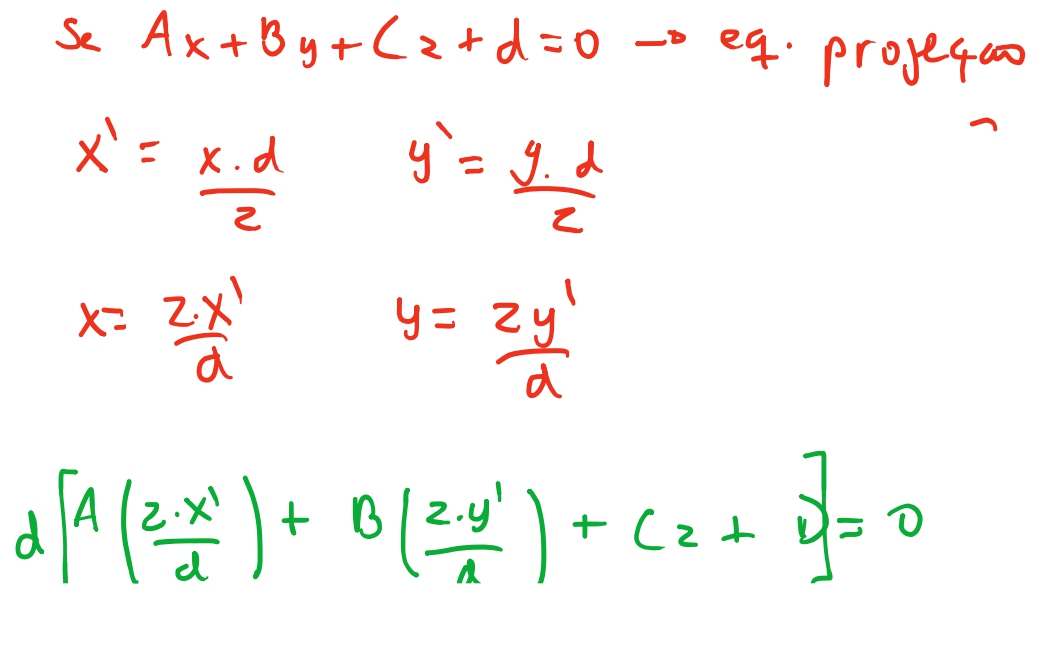 Se Ax + By + Cz + d = 0 → eq. projeção
x' = x.d/z y' = y.d/z
x = z.x'/d y = zy'/d
d[A(z.x'/d) + B(z.y'/d) + Cz + D] = 0